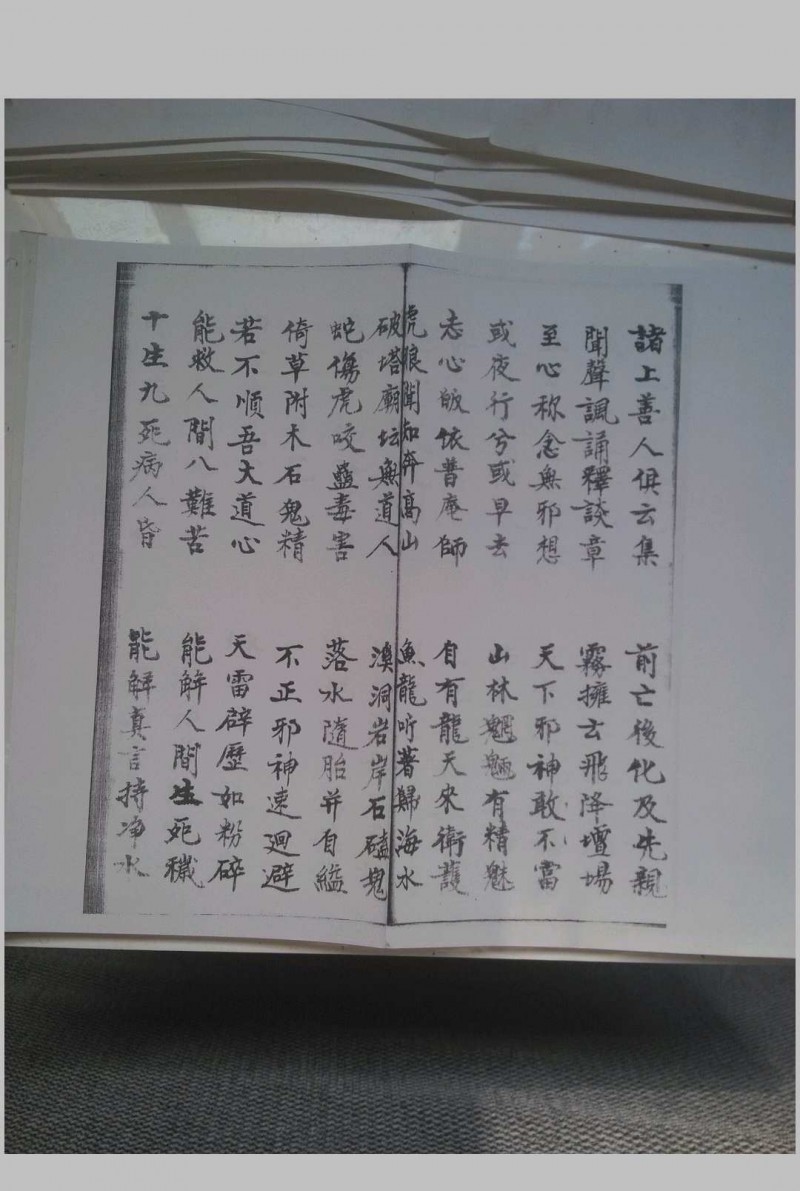 諸上善人俱云集　前亡後化及先親
聞聲諷誦釋談章　霧擁云飛降壇場
至心称念無邪想　天下邪神敢不當
或夜行兮或早去　山林魍魎有精魅
志心皈依普庵師　自有龍天來衛護
虎狼聞知奔高山　魚龍听著歸海水
破塔廟坛無道人　澳洞岩岸石磕塊
蛇傷虎咬蠱毒害　落水隨胎并自縊
倚草附木石鬼精　不正邪神速迴避
若不順吾大道心　天雷辟歷如粉碎
能救人間八難苦　能解人間生死穢
十生九死病人昏　能解真言持净水